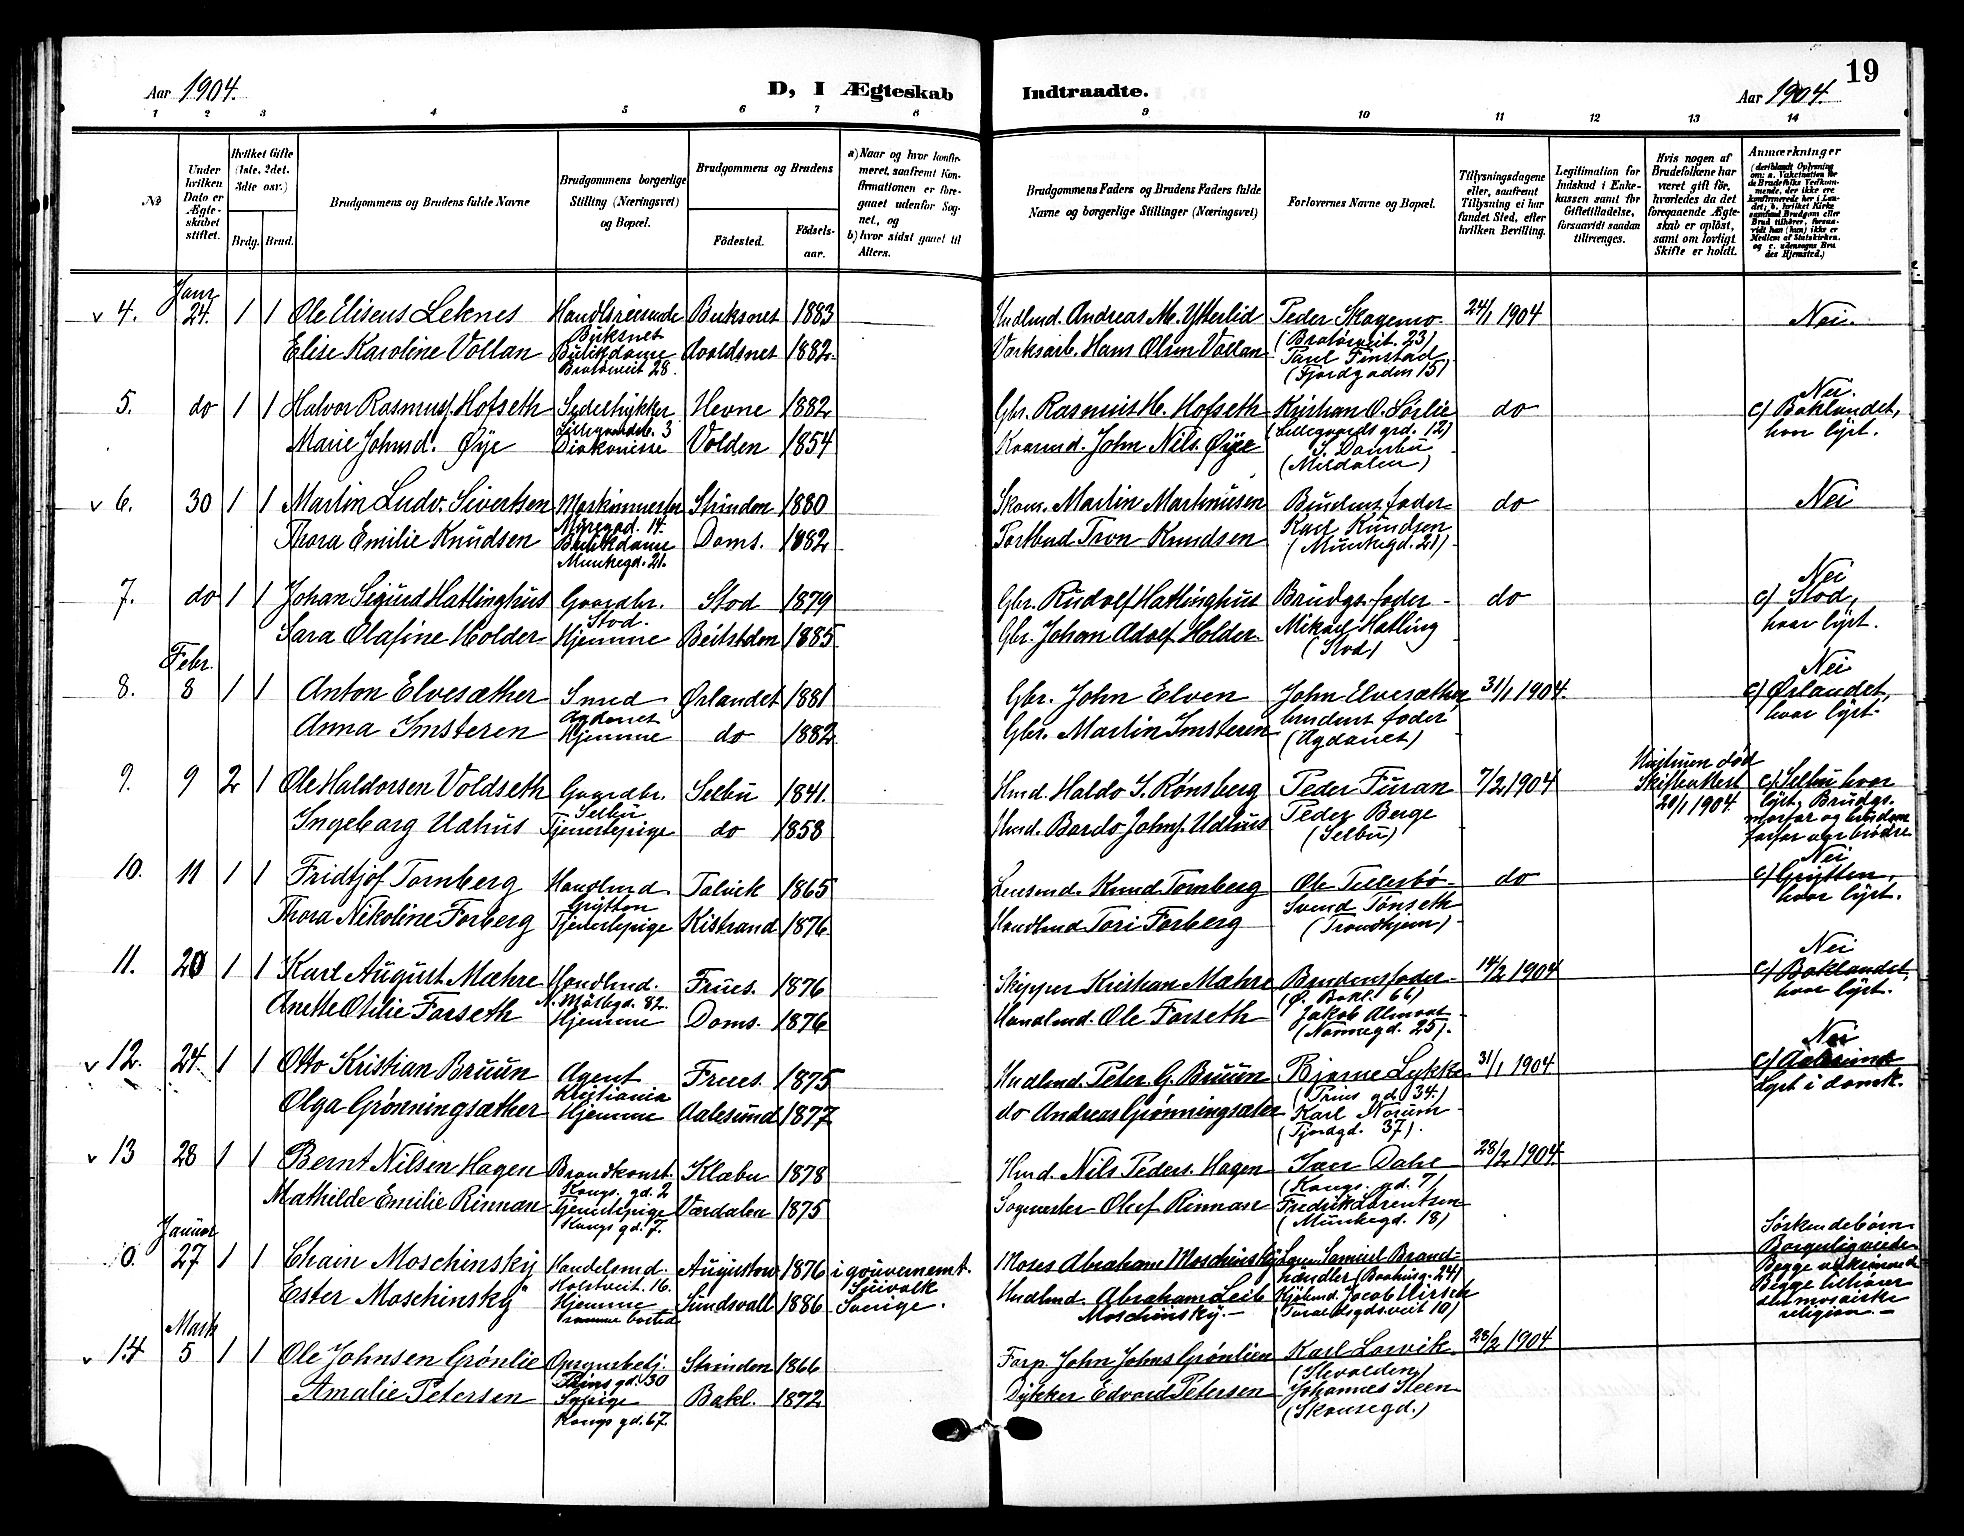 19
Aar 1904.
D, I Ægteskab Indtraadte.
Aar 1904.
1 2 3 4 5 6 7 8 9 10 11 12 13 14
No
Under hvilken Dato er Ægteskabet stiftet.
Hvilket Gifte (1ste, 2det. 3die osv.)
Brdg. Brud.
Brudgommens og Brudens fulde Navne
Brudgommens borgerlige Stilling (Næringsvei) og Bopæl.
Brudgommens og Brudens
Fødested.
Fødselsaar.
a) Naar og hvor konfirmeret, saafremt Konfirmationen er foregaaet udenfor Sognet, og
b) hvor sidst gaaet til Alters.
Brudgommens Faders og Brudens Faders fulde Navne og borgerlige Stillinger (Næringsvei)
Forlovernes Navne og Bopæl.
Tillysningsdagene eller, saafremt Tillysning ei har fundet Sted, efter hvilken Bevilling.
Legitimation for Indskud i Enkekassen samt for Giftetilladelse, forsaavidt saadan tiltrænges.
Hvis nogen af Brudefolkene har været gift før, hvorledes da det foregaaende Ægteskab er opløst, samt om lovligt Skifte er holdt.
Anmærkninger
Janr
v 4. 24. 1 1 Ole Eliseus Leknes Handlsreisende Buksnes 1883 Hndlmd. Andreas M. Ytterlid Peder Skagemo 24/1 1904 Nei.
Buksnes (Bratørveit. 23)
Elise Karoline Vollan Butikdame Avaldsnes 1882. Værksarb. Hans Olsen Vollan Paul Finstad
Bratørveit 28. (Fjordgaden 15)
5. do 1 1 Halvor Rasmus. Hofseth Sadeltrykker Hevne 1882 Gbr. Rasmus H. Hofseth Kristian O. Sørlie do Nei.
c) Baklandet, hvor lyst.
3 (Lillegaards grd. 12)
Marie Johnsd. Øye Diakonisse Volden 1854 Kaarmd. John Nils. Øye
v 6. 30 1 1 Martin Ludv. Sivertsen Maskinmester Strinden 1880 Skom. Martin Martinusen Brudens fader do Nei
14.
Thora Emilie Knudsen Butikdame Doms. 1882 Portbud Tron Knudsen Karl Knudsen
Munkegd. 21. (Munkegd. 21)
7. do 1 1 Johan Sigurd Hatlinghus Gaardbr. Stod 1879 Gbr. Rudolf Hatlinghus Brudgs. fader do Nei
Stod. c) Stod, hvor lyst.
Sara Olafine Holder Hjemme Beitstden 1885 Gbr. Johan Adolf Holder Mikael Hatling
(Stod)
Febr.
8. 8 1 1 Anton Elvesæther Smed Ørlandet 1881 Gbr. John Elven John Elvesæther 31/1 1904. Nei
Agdenes c) Ørlandet, hvor lyst.
Anna Imsteren Hjemme do 1882 Gbr. Martin Imsteren brudens fader
(Agdenes)
9. 9 2 1 Ole Haldorsen Voldseth Gaardbr. Selbu 1841. Hmd. Haldo I. Rønsberg Peder Furan 7/2 1904 Hustruen død Skifteattest 20/1 1904. c) Selbu hvor lyst, Brudgs. morfar og brudens farfar var brødre
Selbu
Ingeborg Udhus Tjenestepige do 1858 Hmd. Bardo Johns. Udhus Peder Berge
(Selbu)
10. 11 1 1 Fridtjof Tornberg Handlmd. Talvik 1865 Lensmd. Knud Tornberg Ole Tillerbø do Nei
Grytten c) Grytten, hvor lyst.
Thora Nikoline Forberg Tjenestepige Kistrand 1876 Handlmd Tori Forberg Svend Tønseth
(Trondhjem)
11. 20 1 1 Karl August Mæhre Handlmd. Frues. 1876 Skipper Kristian Mæhre Brudens fader 14/2 1904 Nei
82. (Ø. Bakl. 66) c) Baklandet, hvor lyst.
Anette Otilie Forseth Hjemme Doms. 1876 Handlmd. Ole Forseth Jakob Almaas
(Nonnegd. 25).
v 12. 24. 1 1 Otto Kristian Bruun Agent Frues. 1875 Hndlmd. Peter G. Bruun Bjarne Lykke 31/1 1904 Nei
Kristiania (Prins gd 34.) c) Aalesund Lyst i domk.
Olga Grønningsæther Hjemme Aalesund 1877 do Andreas Grønningsæter Karl Norum
(Fjordgd. 37).
v 13 28 1 1 Bernt Nilsen Hagen Brandkonst. Klæbu 1878 Hmd. Nils Peders. Hagen Ivar Dahl 28/2 1904
Kongs. gd. 2 (Kongs. gd. 7)
Mathilde Emilie Rinnan Tjenestepige Værdalen 1875 Sagmester Oluf Rinnan Fredrik Lorentsen
Kongs gd. 7. (Munkegd. 18)
Januar
0. 27 1 1 Chain Moschinsky Handelsmd. Augustow 1876 i gouvernemt. Suivalk Moses Abraham Moschinsky Samuel Brandhændler (Baahusg. 24) Søskendebørn
Holstveit. 16. Borgerligviede
Ester Moschinsky Hjemme Sundsvall 1886 Sverige. Hndlmd. Abraham Leib Moschinsky. Jacob Hirsch Begge
Begge tilhører den mosaiske religion.
Marts
v 14 5 1 1 Ole Johnsen Grønlie Strinden 1866 Forp John Johns Grønlien Karl Larvik 28/2 1904
Prins gd. 30
Amalie Petersen Sypige Bakl. 1872 Dykker Edvard Petersen Johannes Steen
Kongs gd. 67. (Skansegd.)